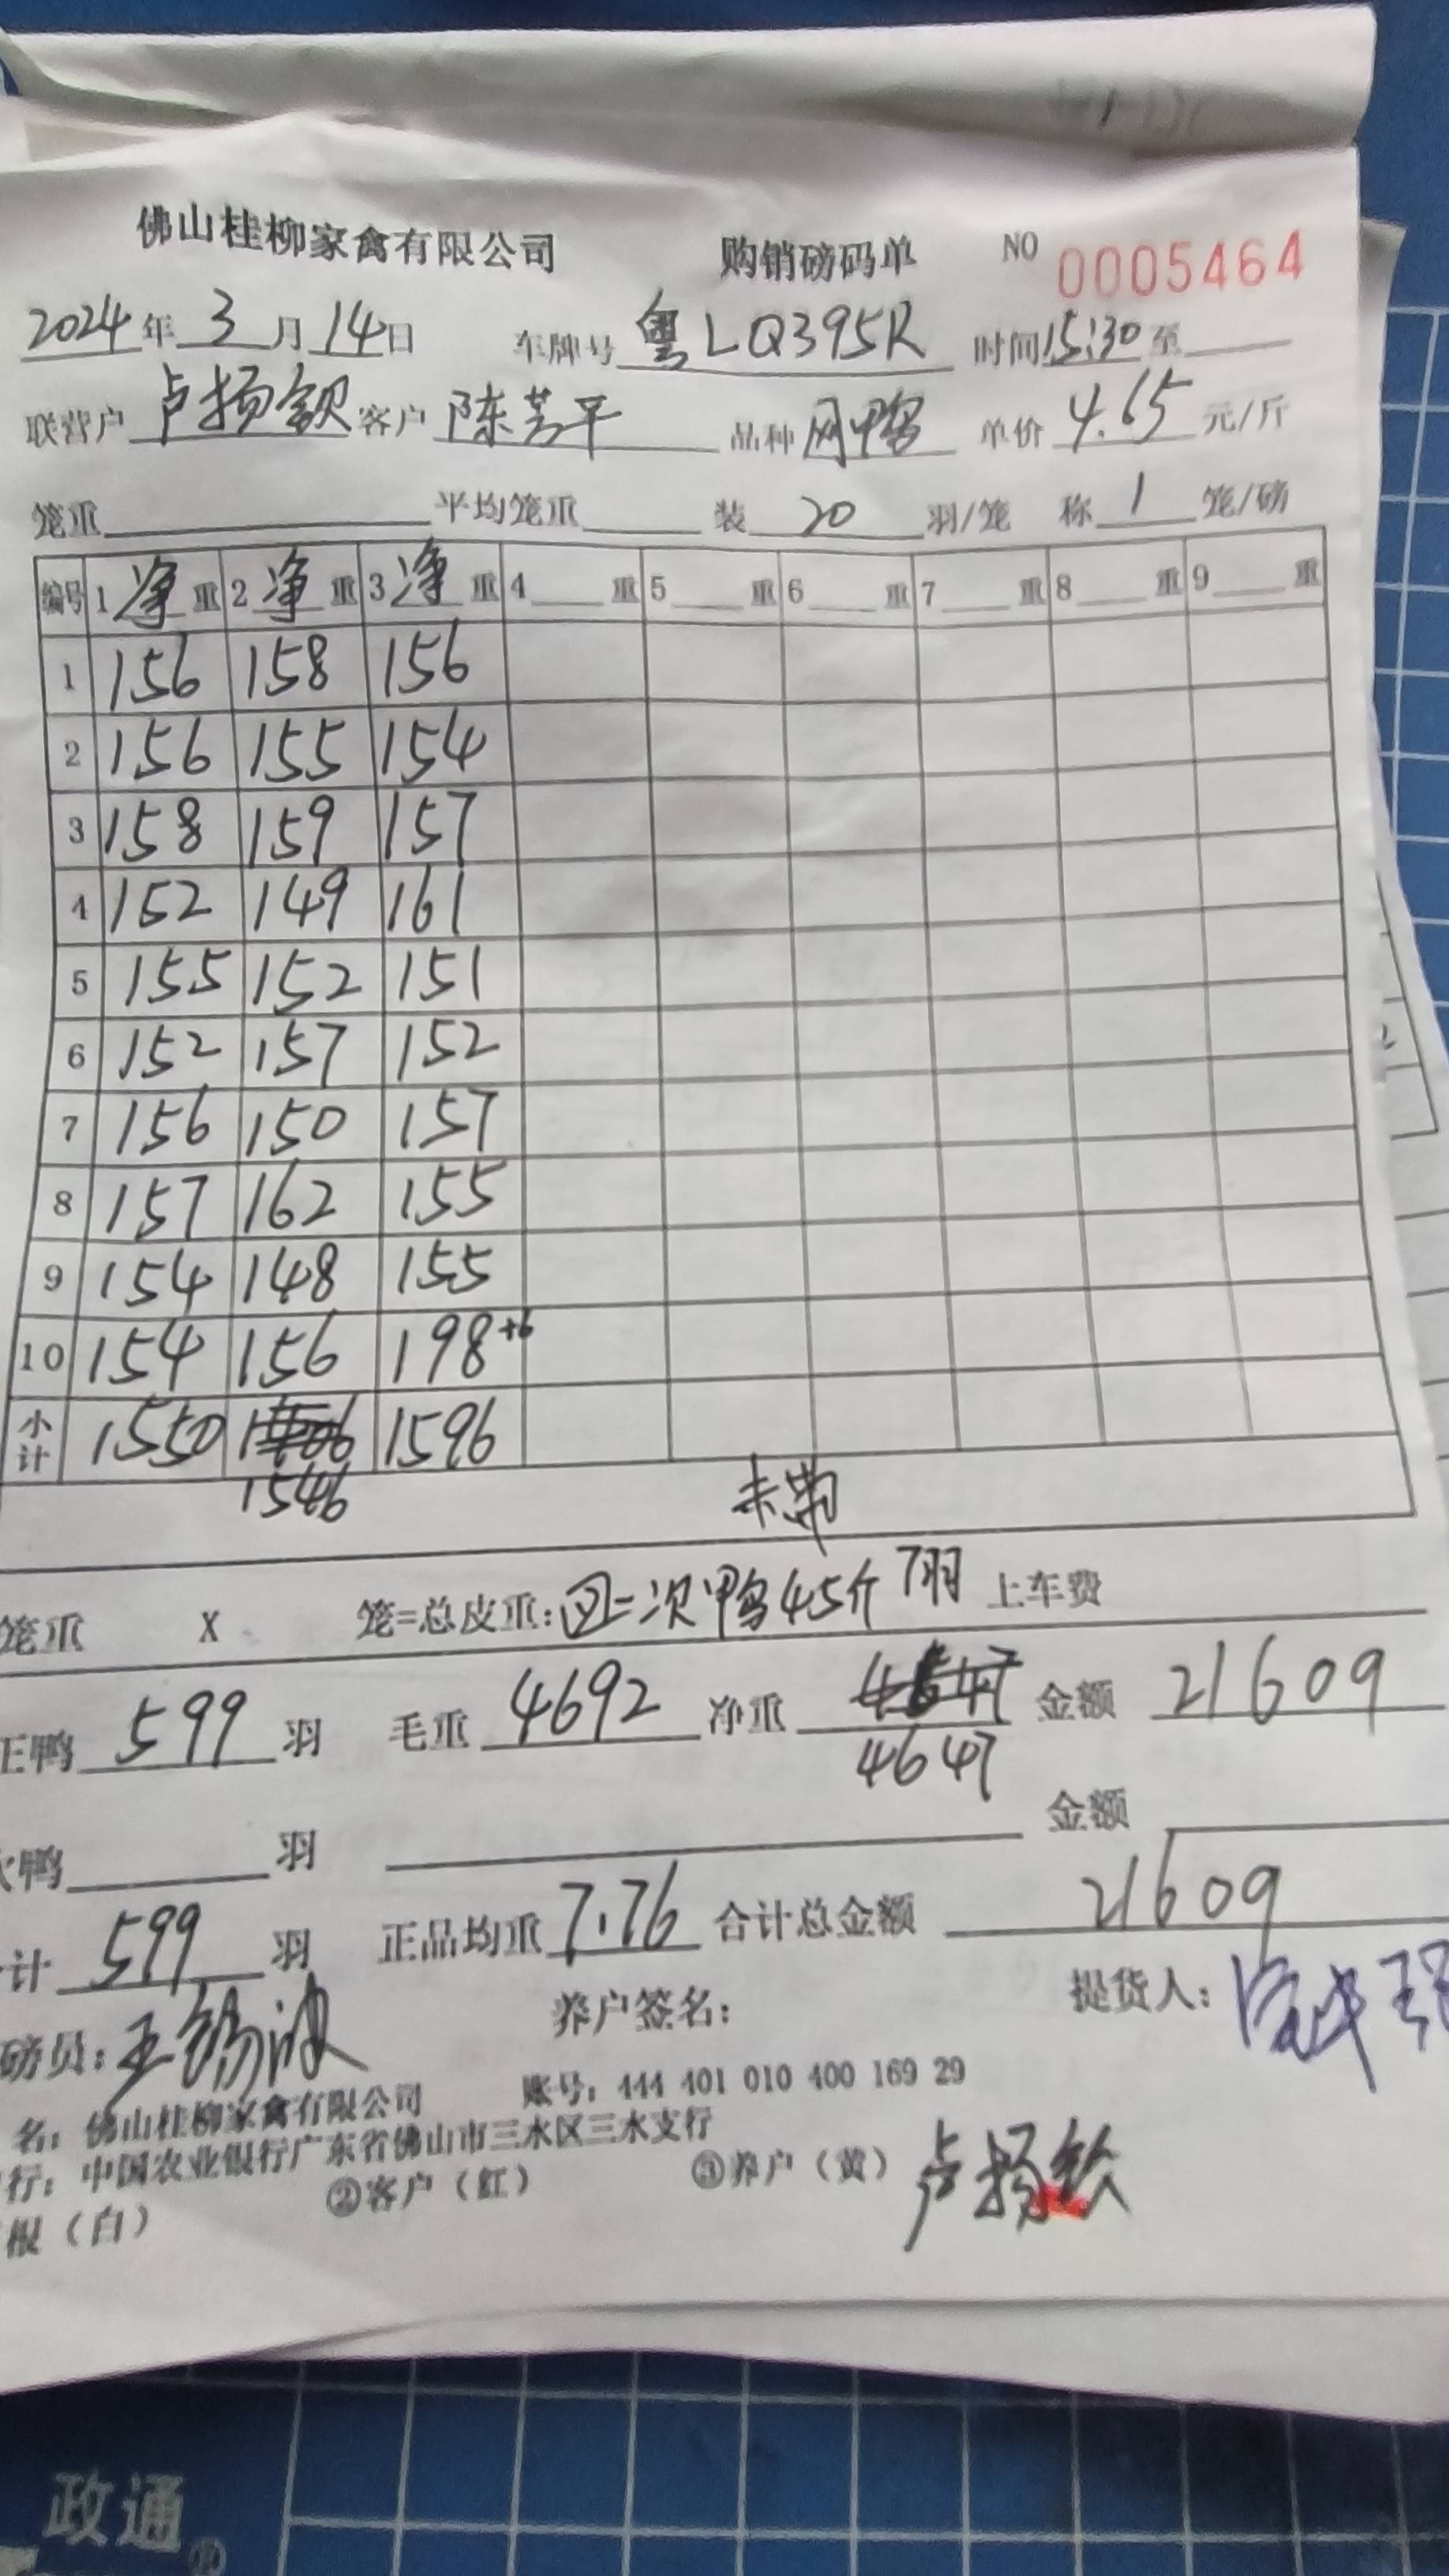 佛山桂柳家禽有限公司 购销磅码单 NO 0005464
2024年3月14日 车牌号 粤LQ395R 时间15:30至
联营户 卢扬钦 客户 陈芳平 品种 网鸭 单价 4.65 元/斤
笼重 平均笼重 装 20 羽/笼 称 1 笼/磅
编号 1 净 重 2 净 重 3 净 重 4 重 5 重 6 重 7 重 8 重 9 重
1 156 158 156
2 156 155 154
3 158 159 157
4 152 149 161
5 155 152 151
6 152 157 152
7 156 150 157
8 157 162 155
9 154 148 155
10 154 156 198+6
小计 1550 1596
1546
未带
笼重 X 笼=总皮重: 回=次鸭45斤 7羽 上车费
正鸭 599 羽 毛重 4692 净重 4647 金额 21609
4647
次鸭 羽 金额
计 599 羽 正品均重 7.76 合计总金额 21609
磅员: 王锡波 养户签名: 提货人:
名: 佛山桂柳家禽有限公司 账号: 444 401 010 400 169 29
行: 中国农业银行广东省佛山市三水区三水支行
报(白) ②客户(红) ③养户(黄) 卢扬钦
政通